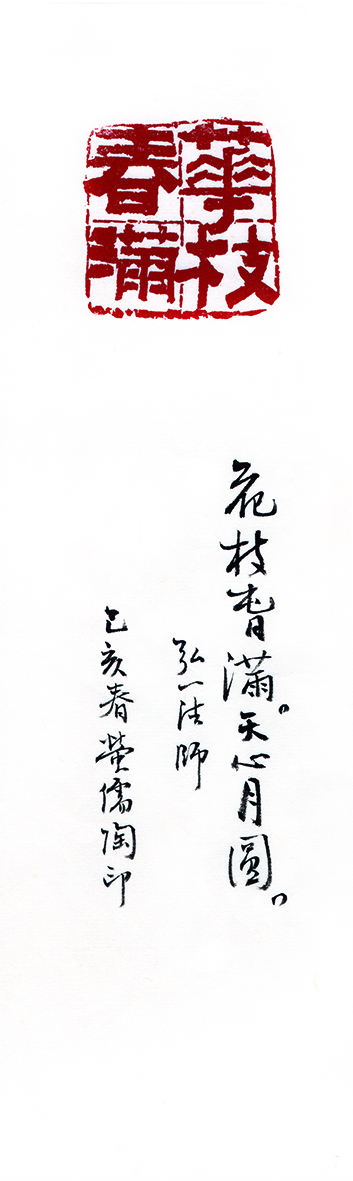 華枝
春滿
花枝春滿。天心月圓。
弘一法師
己亥春螢儒陶印